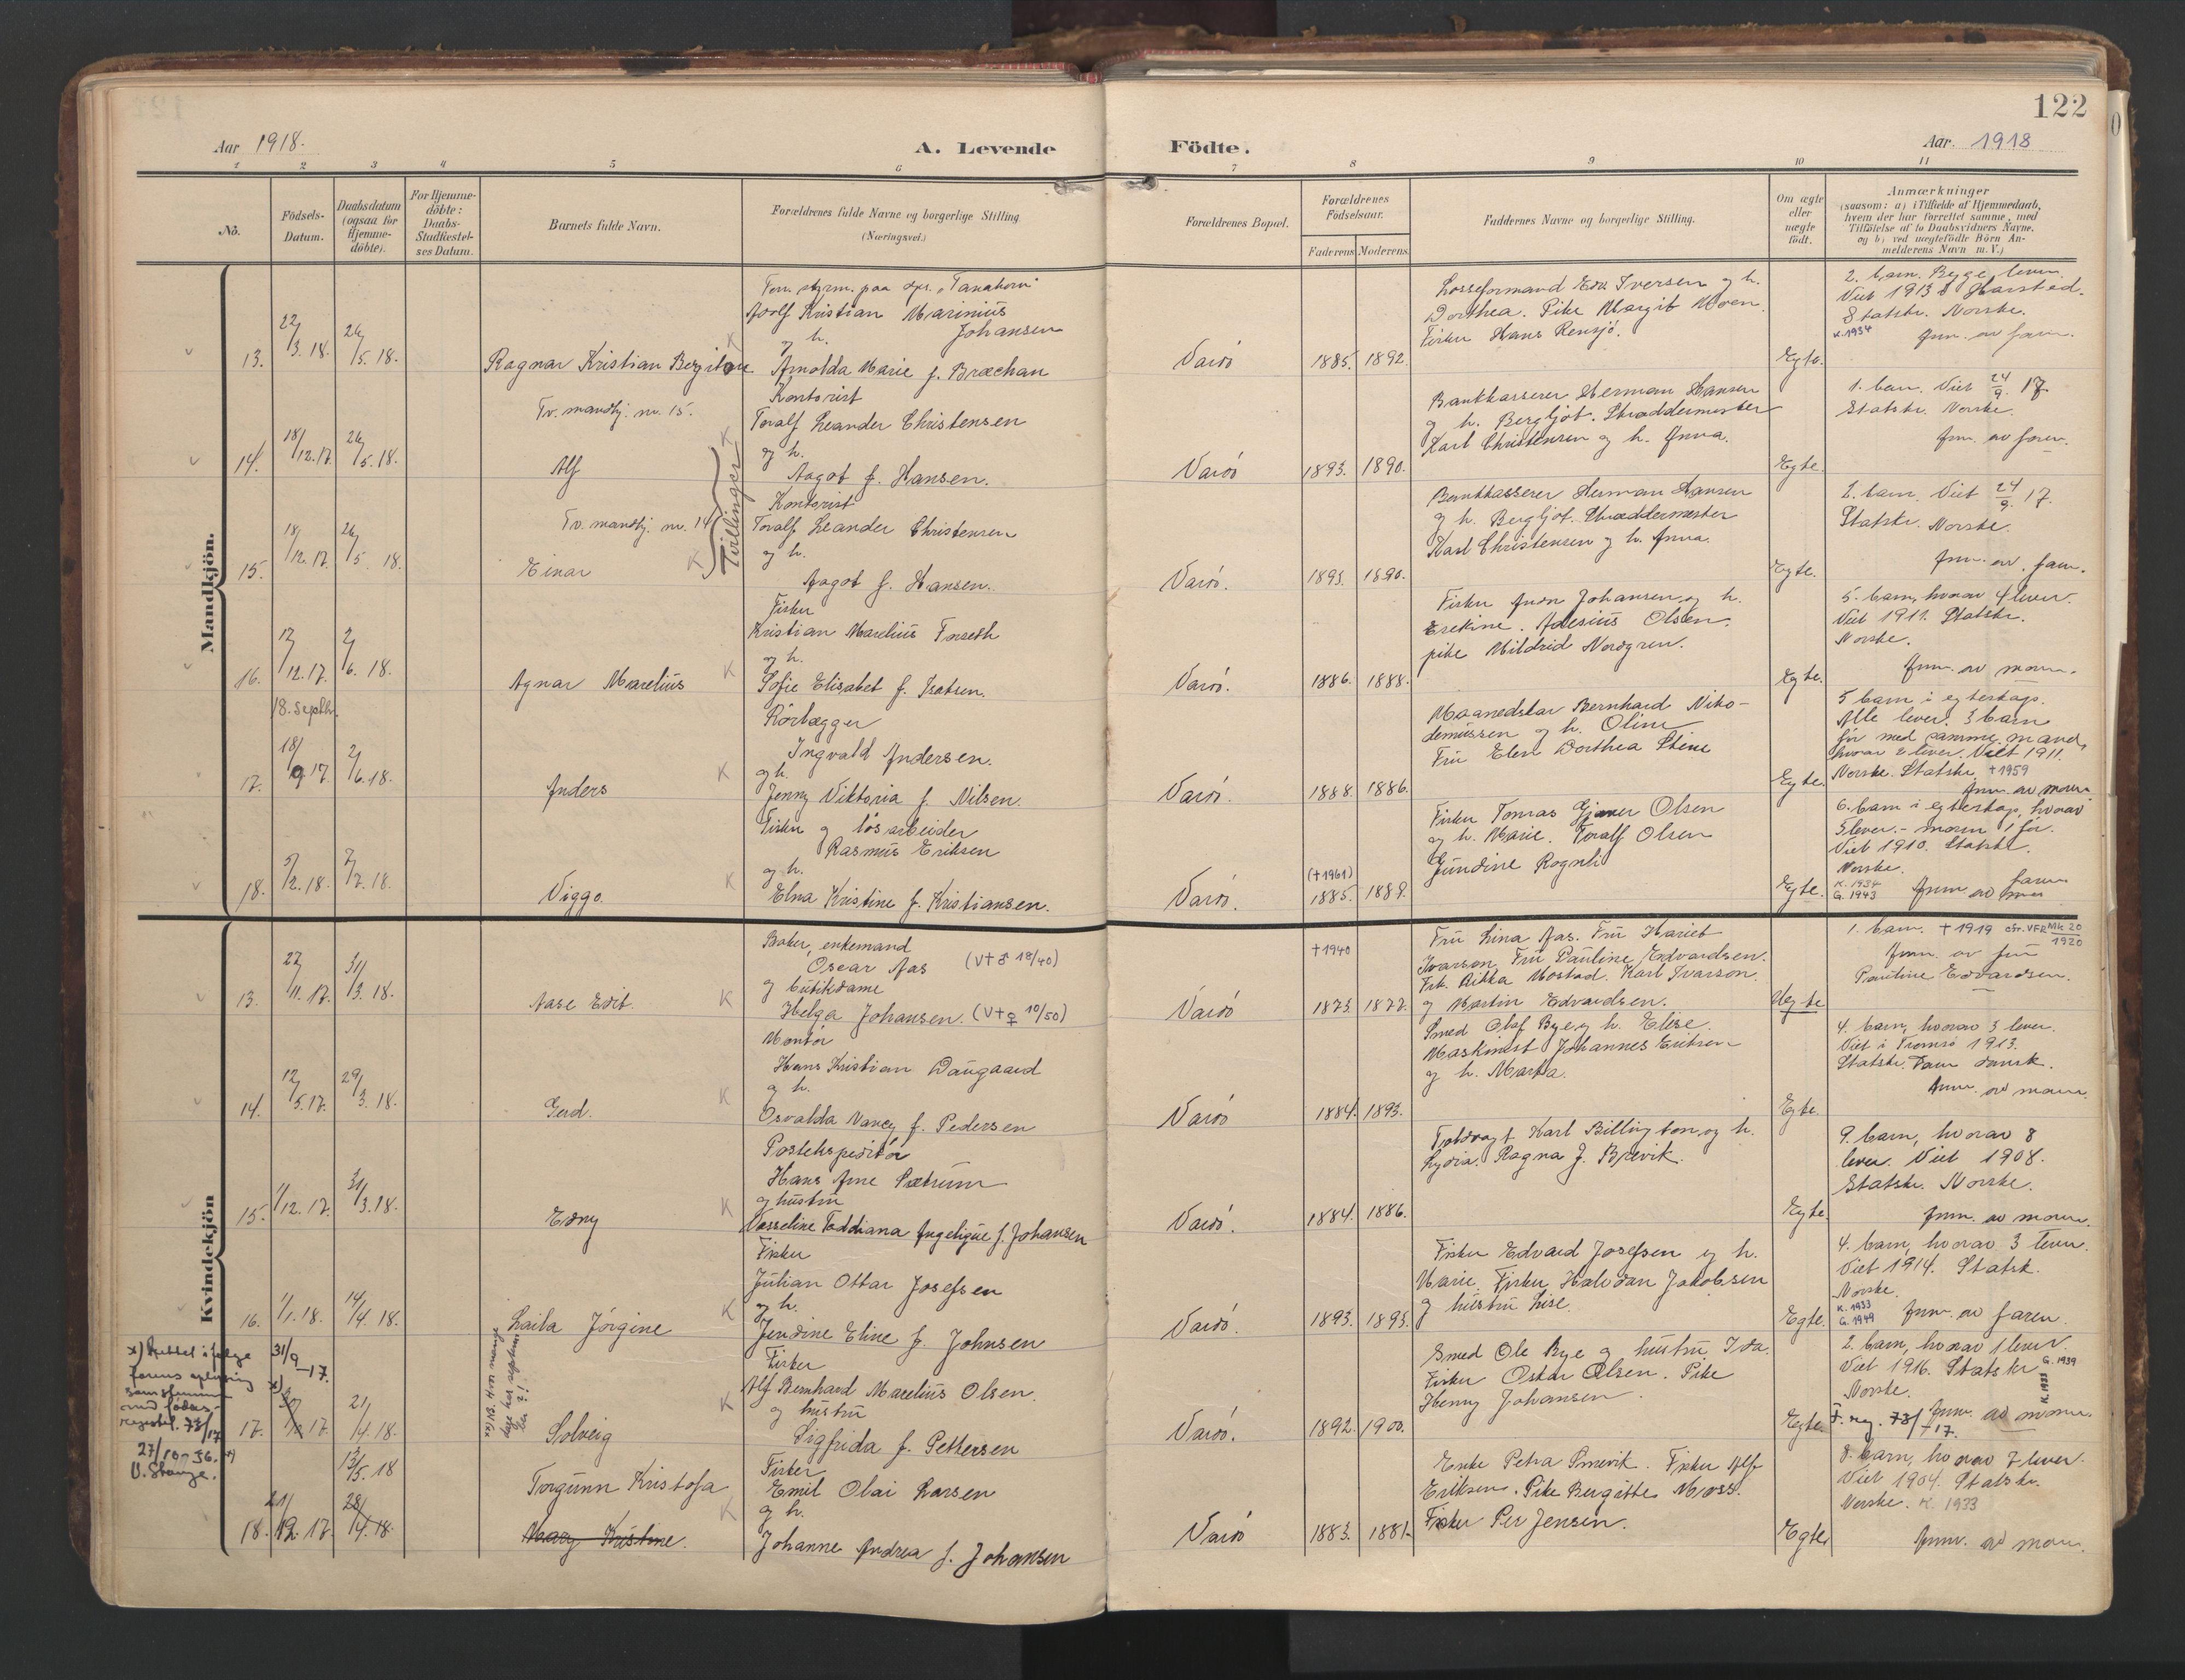 122
Aar 1918.
A. Levende
Födte.
Aar. 1918
1 2 3 4 5 6 7 8 9 10 11
No.
Födsels-
Datum.
Daabsdatum
(ogsaa for
Hjemme-
döbte).
For Hjemme-
döbte:
Daabs-
Stadfæstel-
ses Datum.
Barnets fulde Navn.
Forældrenes fulde Navne og borgerlige Stilling
(Næringsvei.)
Forældrenes Bopæl.
Forældrenes
Födselsaar.
Faderens Moderens
Faddernes Navne og borgerlige Stilling.
Om ægte
eller
uægte
födt.
Anmærkninger
(saasom: a) i Tilfælde af Hjemmedaab,
hvem der har forrettet samme, med
Tilföielse af to Daabsvidners Navne.
og b) ved uægtefödte Börn An-
melderens Navn m. V.)
Mandkjön.
13.
22/3. 18.
26/5. 18.
Ragnar Kristian Bergiton
styrm. paa "Tanahorn"
Adolf Kristian Marinius
Johansen
og h.
Arnolda Marie f. Bræchan
Vardö
1885. 1892.
Losseformand Edv. Iversen og h.
Dorthea. Pike Margit Moen.
Fisker Hans Rensjö.
Egte.
2. barn. Begge lever.
Viet 1913 i Harstad.
Statskr. Norske.
K. 1934
Anm. av faren.
14.
18/12. 17.
26/5. 18.
Tv. mandkj. nr. 15.
Alf
K
Tvillinger
Kontorist
Toralf Leander Christensen
og h.
Aagot f. Hansen.
Vardö
1893. 1890.
Bankkasserer Herman Hansen
og h. Bergljot. Skræddermester
Karl Christensen og h. Anna.
Egte.
1. barn. Viet 24/9. 17.
Statskr. Norske.
Anm. av faren.
15.
18/12. 17.
26/5. 18.
Tv. mandkj. nr. 14
Einar
K
Kontorist
Toralf Leander Christensen
og h.
Aagot f. Hansen.
Vardö.
1893. 1890.
Bankkasserer Herman Hansen
og h. Bergljot. Skræddermester
Karl Christensen og h. Anna.
Egte.
2. barn. Viet 24/9. 17.
Statskr. Norske.
Anm. av faren.
16.
12/12. 17.
2/6. 18.
Agnar Marelius
K
Fisker
Kristian Marelius Forseth
og h.
Sofie Elisabet f. Isaksen.
Vardö.
1886. 1888.
Fisker Johansen og h.
Olsen.
pike Mildrid Nordgren.
Egte.
5. barn, hvorav 4 lever.
Viet 1911. Statskr.
Norske.
Anm. av moren.
17.
18. Septbr.
18/9 17.
2/6. 18.
Anders
K
Rörlægger
Ingvald Andersen.
og h.
Jenny Viktoria f. Nilsen.
Vardö.
1888. 1886.
Maanedskar Bernhard Niko-
demussen og h. Oline
Fru Elen Dorthea Stine
Egte.
5 barn i egteskap.
Alle lever. 3 barn
för med samme mand,
hvorav 2 lever. Viet 1911.
Norske. Statskr. †1959
Anm. av moren
18.
5/2. 18.
7/7. 18.
Viggo.
K
Fisker og lösarbeider
Rasmus Eriksen
og h.
Elna Kristine f. Kristiansen.
Vardö.
(†1961)
1885. 1889.
Fisker Tomas Gjæver Olsen
og h. Marie. Toralf Olsen
Gundine Rognli
Egte.
6. barn i egteskap, hvorav
5 lever. - moren 1 för.
Viet 1910. Statskr.
Norske.
K. 1934
G. 1943
Anm. av faren
Kvindekjön
13.
27/11. 17.
31/3. 18.
Aase Edit.
K
Baker, enkemand
Oscar Aas (V† ♂ 18/40)
og butikdame
Helga Johansen. (V† ♀ 10/50)
Vardö
†1940
1873. 1877.
Fru Lina Aas. Fru Hariet
Ivarson. Fru Pauline Edvardsen.
Frk. Rikka Mostad. Karl Ivarson
og Martin Edvardsen.
Uegte
1. barn. † 1919 cfr. VFR Mk 20/1920
Anm. av fru
Pauline Edvardsen.
14.
12/5. 17.
29/3. 18.
Gerd.
K
Montör
Hans Kristian Daugaard
og h.
Osvalda Nancy f. Pedersen
Vardö
1884. 1893.
Smed Olaf Bye og h. Elise.
Maskinist Johannes Eriksen
og h. Marta.
Egte.
4. barn, hvorav 3 lever.
Viet i Tromsö 1913.
Statskr. Faren dansk.
Anm. av moren.
15.
11/12. 17.
31/3. 18.
Edny
K
Postekspeditör
Hans Arne Sætrum
og hustru
Vasseline Taddiana Angelique f. Johansen
Vardö.
1884. 1886.
Toldvagt Karl Billington og h.
Lydia. Ragna J. Brevik.
Egte.
9. barn, hvorav 8
lever. Viet 1908.
Statskr. Norske.
Anm. av moren.
16.
1/1. 18.
14/4. 18.
Laila Jörgine
K
Fisker
Julian Ottar Josefsen
og h.
Jendine Eline f. Johnsen
Vardö.
1893. 1893.
Fisker Edvard Josefsen og h.
Marie. Fisker Halvdan Jakobsen
og hustru Lise.
Egte.
4. barn, hvorav 3 lever.
Viet 1914. Statsk.
Norske.
K. 1933
G. 1949
Anm. av faren.
x) Rettet i følge
farens oplysning
samstemmer
med fødsels-
registret. 73/17
27/10-36.
17.
31/9-17.
x)
21/4. 18.
Solveig
K
Fisker
Alf Bernhard Marelius Olsen.
og hustru
Sigfrida f. Pettersen
Vardö.
1892. 1900.
Smed Ole Bye og hustru Ida.
Fisker Oskar Olsen. Pike
Henny Johansen.
Egte.
2. barn, hvorav 1 lever.
Viet 1916. Statskr. G. 1939
Norske. K. 1933
F. reg. 73/17.
Anm. av moren.
18.
21/12. 17.
13/5. 18
28/4. 18.
Torgunn Kristofa
Kristine.
K
Fisker
Emil Olai Larsen
og h.
Johanne Andrea f. Johansen
Vardö
1883. 1881.
Enke Petra Smevik. Fisker Alf
Eriksen. Pike Bergitte Moss.
Fisker Per Jensen.
Egte.
8. barn, hvorav 7 lever.
Viet 1904. Statskr.
Norske. K. 1933
Anm. av moren.